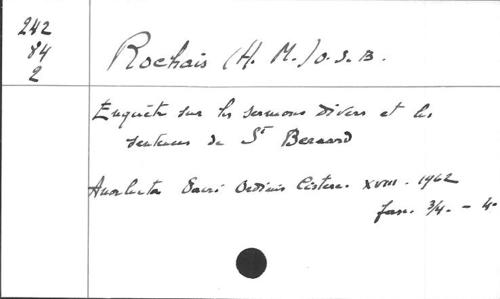 242
84
2
Rochais (H. M.) O. S. B.
Enquête sur les sermons divers et les
sentences de St Bernard
Analecta Sacri Ordinis Cisterc. XVIII. 1962
fasc. 3/4. - 4.